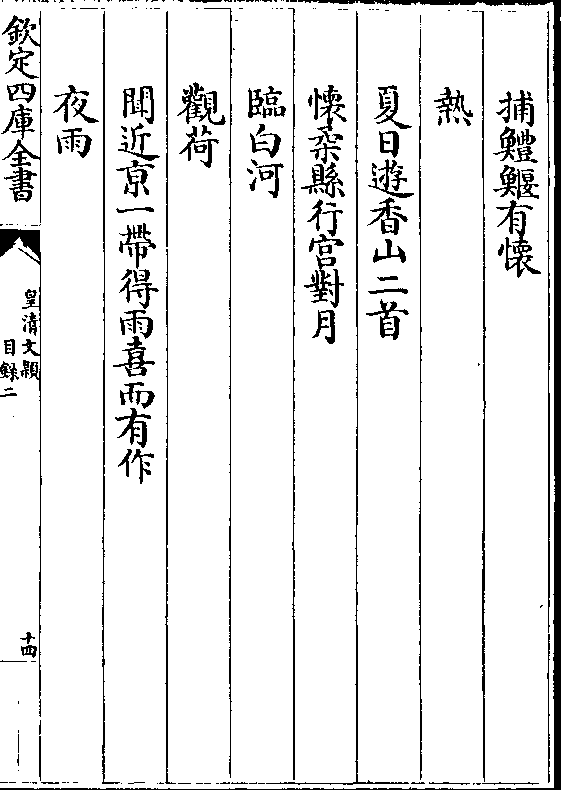 捕鱧鰋有懷
熱
夏日遊香山二首
懷柔縣行宫對月
臨白河
觀荷
聞近京一帶得雨喜而有作
夜雨
欽定四庫全書
皇清文頴
目録二
十四